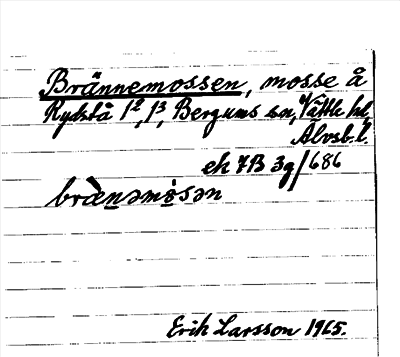 Brännemossen, mosse å
Rydstå 1², 1³, Bergums sn, Vättle hd,
Älvsb. l.
ek 7B 3g/686
bræ̀nəmɷ̀sən
Erik Larsson 1965.